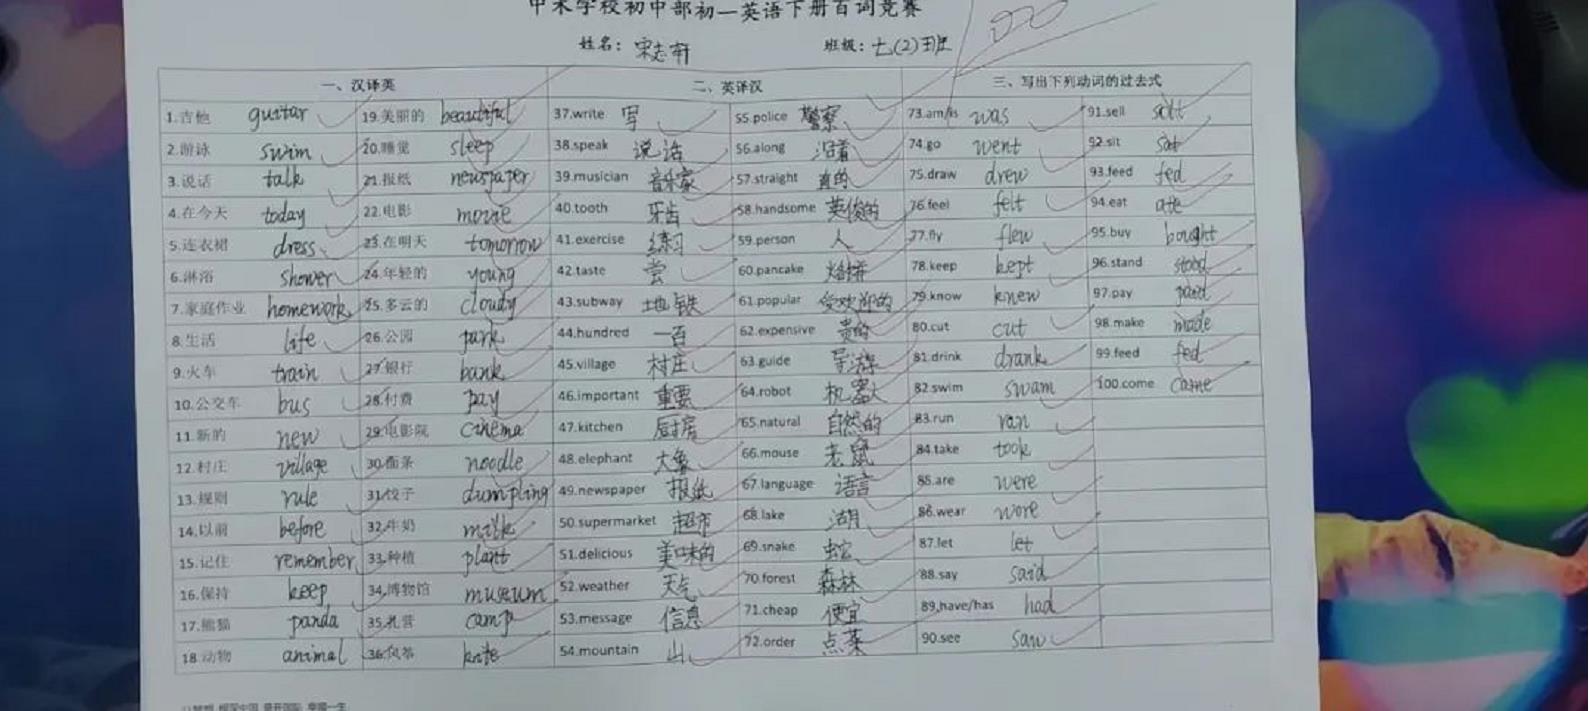 中木学校初中部初一英语下册百词竞赛
姓名：宋志轩 班级：七(2)班
一、汉译英 二、英译汉 三、写出下列动词的过去式
1.吉他 guitar 19.美丽的 beautiful 37.write 写 55.police 警察 73.am/is was 91.sell
2.游泳 swim 20.睡觉 sleep 38.speak 说话 56.along 沿着 74.go went 92.sit sat
3.说话 talk 21.报纸 newspaper 39.musician 音乐家 57.straight 直的 75.draw drew 93.feed fed
4.在今天 today 22.电影 movie 40.tooth 牙齿 58.handsome 英俊的 76.feel felt 94.eat ate
5.连衣裙 dress 23.在明天 tomorrow 41.exercise 练习 59.person 人 77.fly flew 95.buy bought
6.淋浴 shower 24.年轻的 young 42.taste 尝 60.pancake 烙饼 78.keep kept 96.stand stood
7.家庭作业 homework 25.多云的 cloudy 43.subway 地铁 61.popular 受欢迎的 79.know knew 97.pay paid
8.生活 life 26.公园 park 44.hundred 一百 62.expensive 贵的 80.cut cut 98.make made
9.火车 train 27.银行 bank 45.village 村庄 63.guide 导游 81.drink drank 99.feed fed
10.公交车 bus 28.付费 pay 46.important 重要 64.robot 机器人 82.swim swam 100.come came
11.新的 new 29.电影院 cinema 47.kitchen 厨房 65.natural 自然的 83.run ran
12.村庄 village 30.面条 noodle 48.elephant 大象 66.mouse 老鼠 84.take took
13.规则 rule 31.饺子 dumpling 49.newspaper 报纸 67.language 语言 85.are were
14.以前 before 32.牛奶 milk 50.supermarket 超市 68.lake 湖 86.wear wore
15.记住 remember 33.种植 plant 51.delicious 美味的 69.snake 蛇 87.let let
16.保持 keep 34.博物馆 museum 52.weather 天气 70.forest 森林 88.say said
17.熊猫 panda 35.扎营 camp 53.message 信息 71.cheap 便宜 89.have/has had
18.动物 animal 36.风筝 kite 54.mountain 山 72.order 点菜 90.see saw